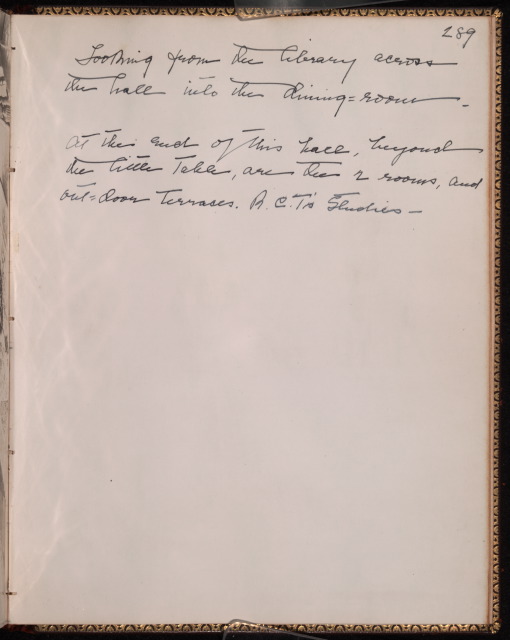 289
Looking from the library across
the hall into the dining=room -
At the end of this hall, beyond
the little table, are the 2 rooms, and
out=door terraces. R.C.T's Studios -